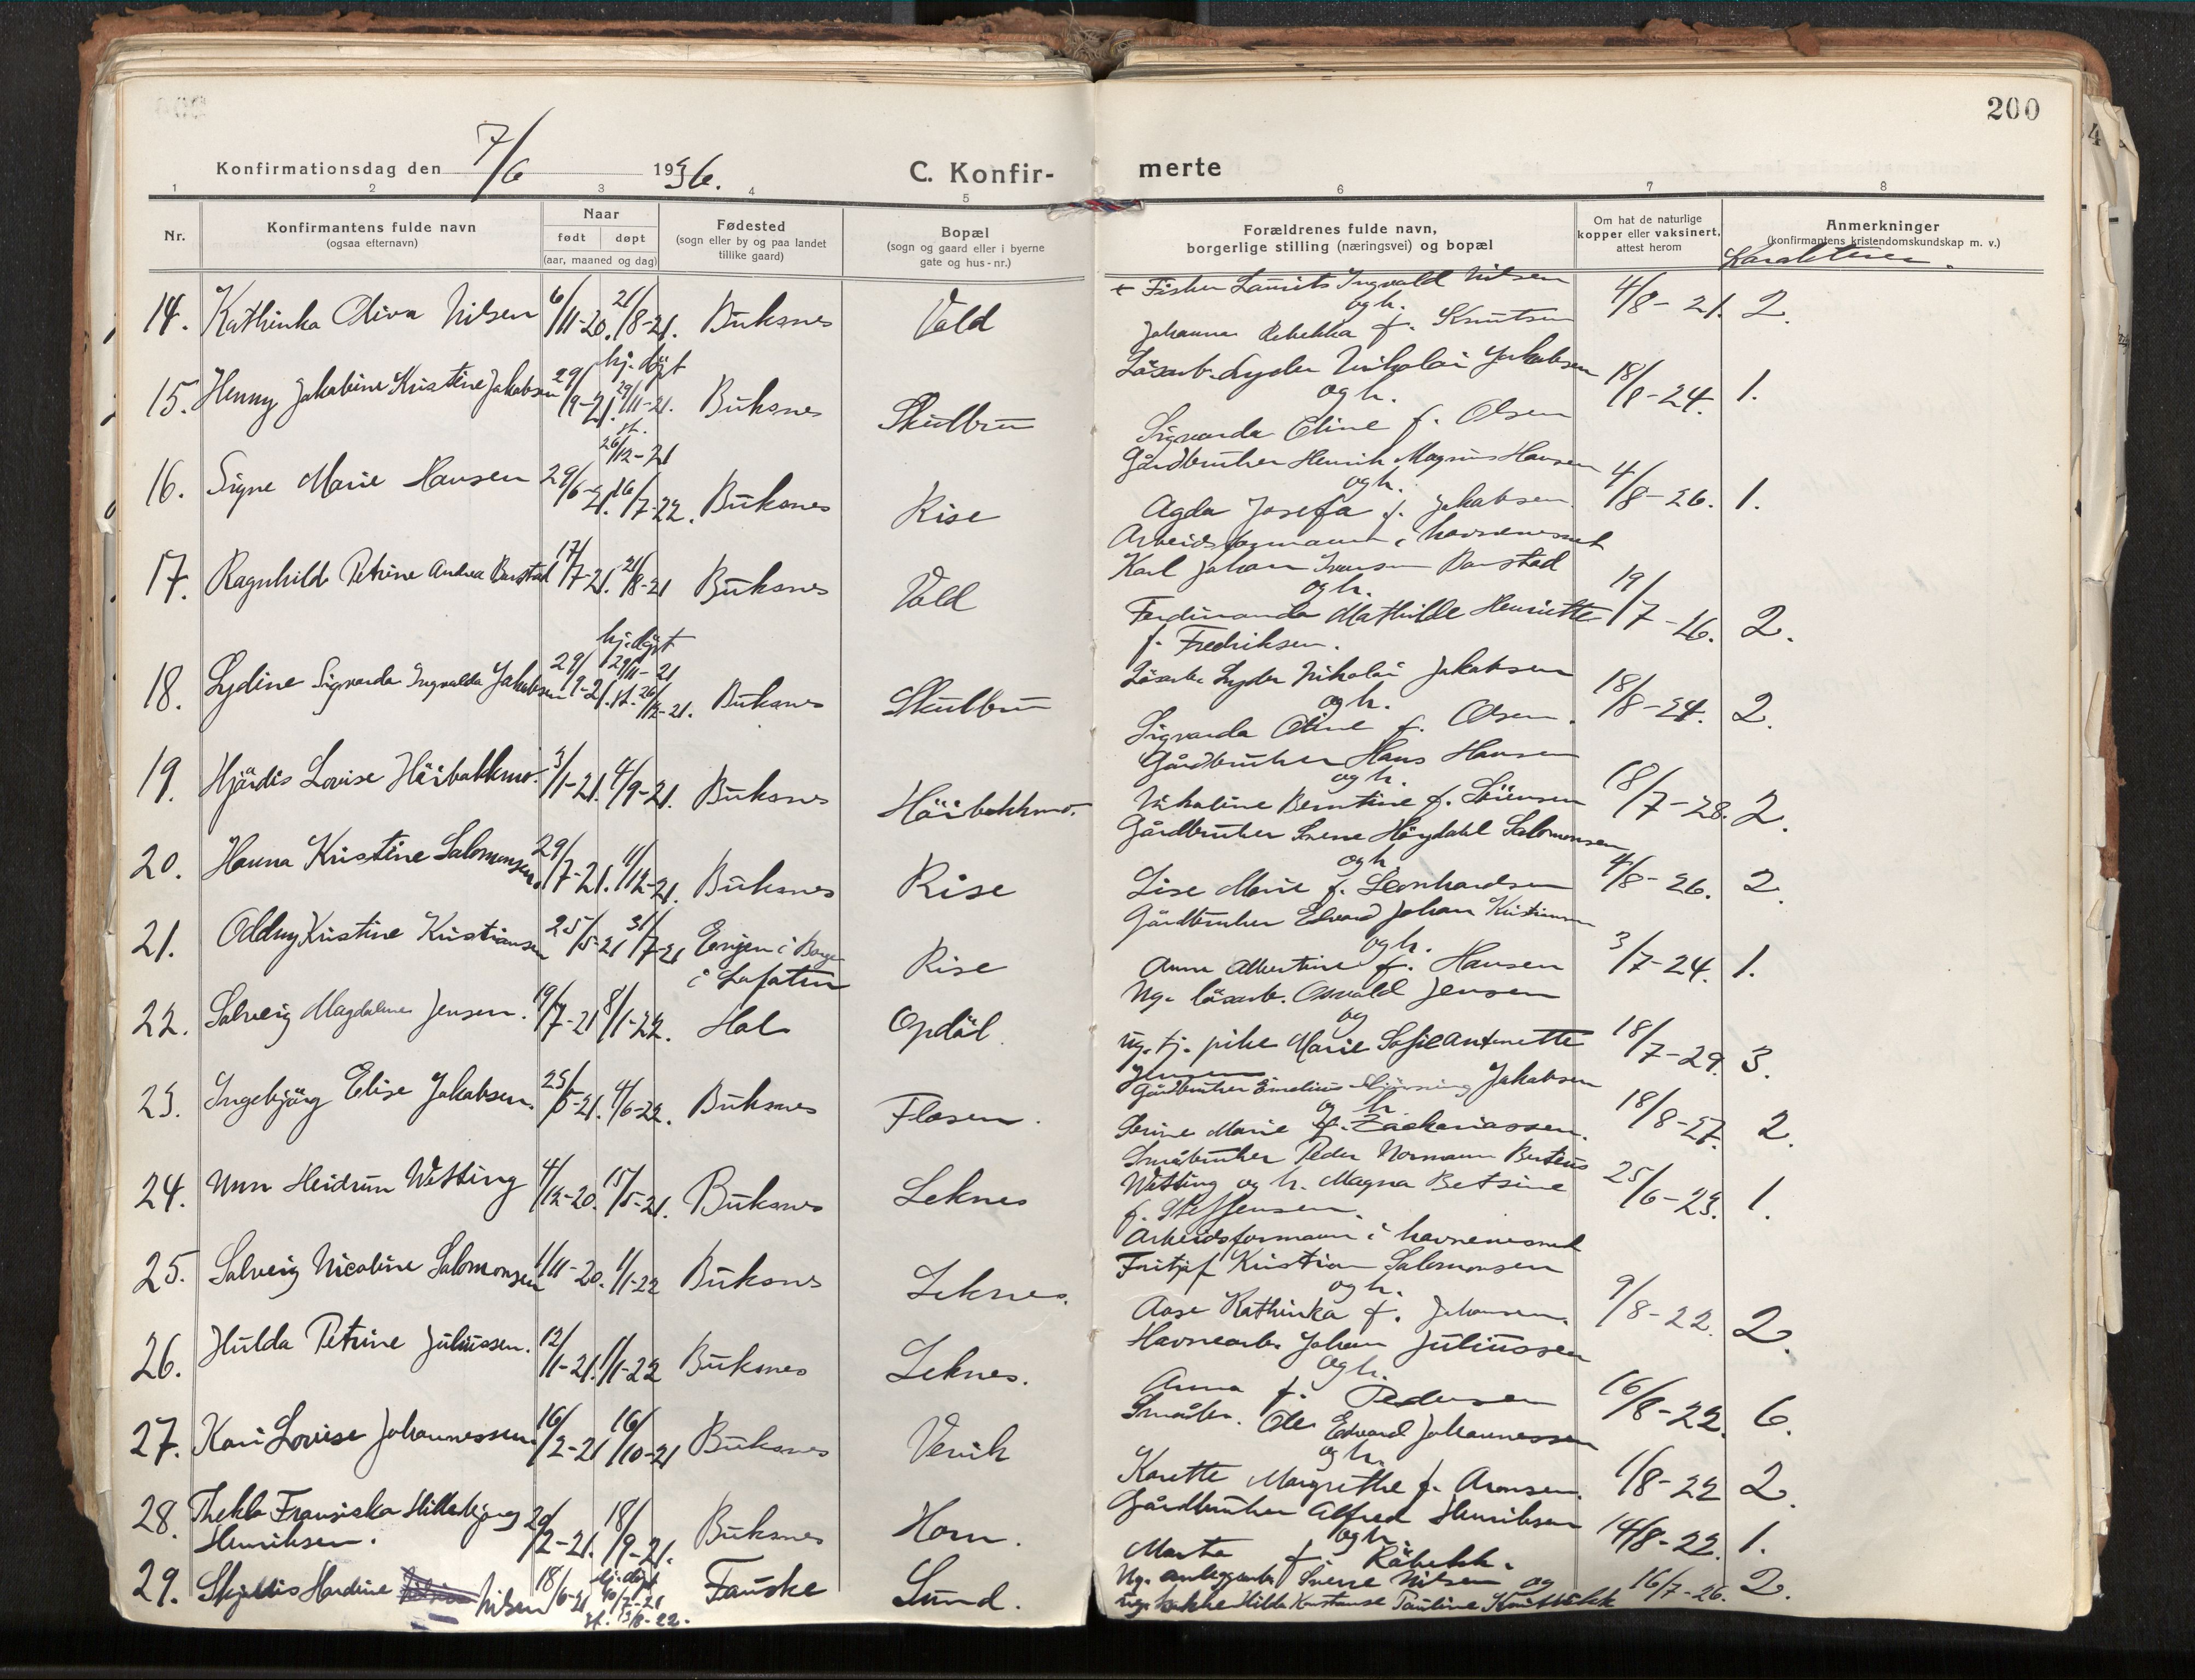 200
Konfirmationsdag den 7/6 1936.
C. Konfir-
merte
1 2 3 4 5 6 7 8
Nr.
Konfirmantens fulde navn
(ogsaa efternavn)
Naar
født døpt
(aar, maaned og dag)
Fødested
(sogn eller by og paa landet
tillike gaard)
Bopæl
(sogn og gaard eller i byerne
gate og hus-nr.)
Forældrenes fulde navn,
borgerlige stilling (næringsvei) og bopæl
Om hat de naturlige
kopper eller vaksinert,
attest herom
Anmerkninger
(konfirmantens kristendomskundskap m. v.)
Karakterer.
14. Kathinka Oliva Nilsen 6/11-20. 21/8-21. Buksnes Vold
Fisker Laurits Ingvald Nilsen
og h.
Johanna Rebekka f. Knutsen
4/8-21. 2.
15. Henny Jakobine Kristine Jakobsen 29/9-21. hj. døpt 29/11-21. st. 26/12-21 Buksnes Skulbru
Lösarb. Lyder Nikolai Jakobsen
og h.
Sigvarda Eline f. Olsen
18/8-24. 1.
16. Signe Marie Hansen 29/6-21. 16/7-22. Buksnes Rise
Gårdbruker Henrik Magnus Hansen
og h.
Agda Josefa f. Jakobsen.
4/8-26. 1.
17. Ragnhild Petrine Andrea 17/7-21. 21/8-21 Buksnes Vold
Arbeidsformann i havnevesnet
Karl Johan
og h.
Ferdinanda Mathilde Henriette
f. Fredriksen.
19/7-26. 2.
18. Lydine Sigvarda Ingvalda Jakobsen 29/9-21. hj. döpt 29/11-21 st. 26/12-21. Buksnes Skulbru
Lösarb. Lyder Nikolai Jakobsen
og h.
Sigvarda Eline f. Olsen.
18/8-24. 2.
19. Hjördis Lovise Höibakkmo. 3/1-21. 4/9-21. Buksnes Höibakkmo.
Gårdbruker Hans Hansen
og h.
Nikoline Berntine f. Sörensen
18/7-28. 2.
20. Hanna Kristine Salomonsen. 29/7-21. 11/12-21. Buksnes Rise
Gårdbruker Sverre Höydahl Salomonsen
og h.
Lise Marie f. Leonhardsen
4/8-26. 2.
21. Oddny Kristine Kristiansen 25/5-21 31/7-21 i Borge
i Lofoten Rise
Gårdbruker Edvard Johan Kristiansen
og h.
Anna Albertine f. Hansen
3/7-24. 1.
22. Solveig Magdalene Jensen. 19/7-21 8/1-22. Hol Opdöl.
Ug. lösarb. Osvald Jensen
og
ug. tj. pike Marie Sofie Antonette
Jensen
18/7-29. 3.
23. Ingebjörg Elise Jakobsen. 25/5-21. 4/6-22. Buksnes Flosen.
Gårdbruker Emelius Jakobsen
og h.
Serine Marie f. Zackariassen.
18/8-27. 2.
24. Unn Heidrun Wetting 4/12-20. 15/5-21. Buksnes Leknes
Småbruker Peder Normann Berteus
Wetting og h. Magna Betsine
f. Steffensen.
25/6-23. 1.
25. Solveig Nicoline Salomonsen 1/11-20. 1/1-22 Buksnes Leknes.
Arbeidsformann i havnevesnet
Fritjof Kristian Salomonsen
og h.
Aase Kathinka f. Johansen.
9/8-22. 2.
26. Hulda Petrine Juliussen. 12/1-21. 1/1-22 Buksnes Leknes.
Havnearb. Johan Juliussen
og h.
Anna f. Pedersen
16/8-22. 6.
27. Kari Lovise Johannessen. 16/2-21 16/10-21 Buksnes Vervik
Småbr. Ole Edvard Johannessen
og h.
Karette Margrethe f. Aronsen.
1/8-22 2.
28. Thekla Fransiska Hillebjørg
Henriksen. 20/2-21. 18/9-21. Buksnes Horn.
Gårdbruker Alfred Henriksen
og h.
Marta f. Räbekk.
14/8-22. 1.
29. Skjoldis Hardine Nilsen 18/6-21 hj. döpt st. Fauske Sund.
Ug. anleggsarb. Sverre Nilsen og
Hilda Konstanse Pauline
16/7-26. 2.